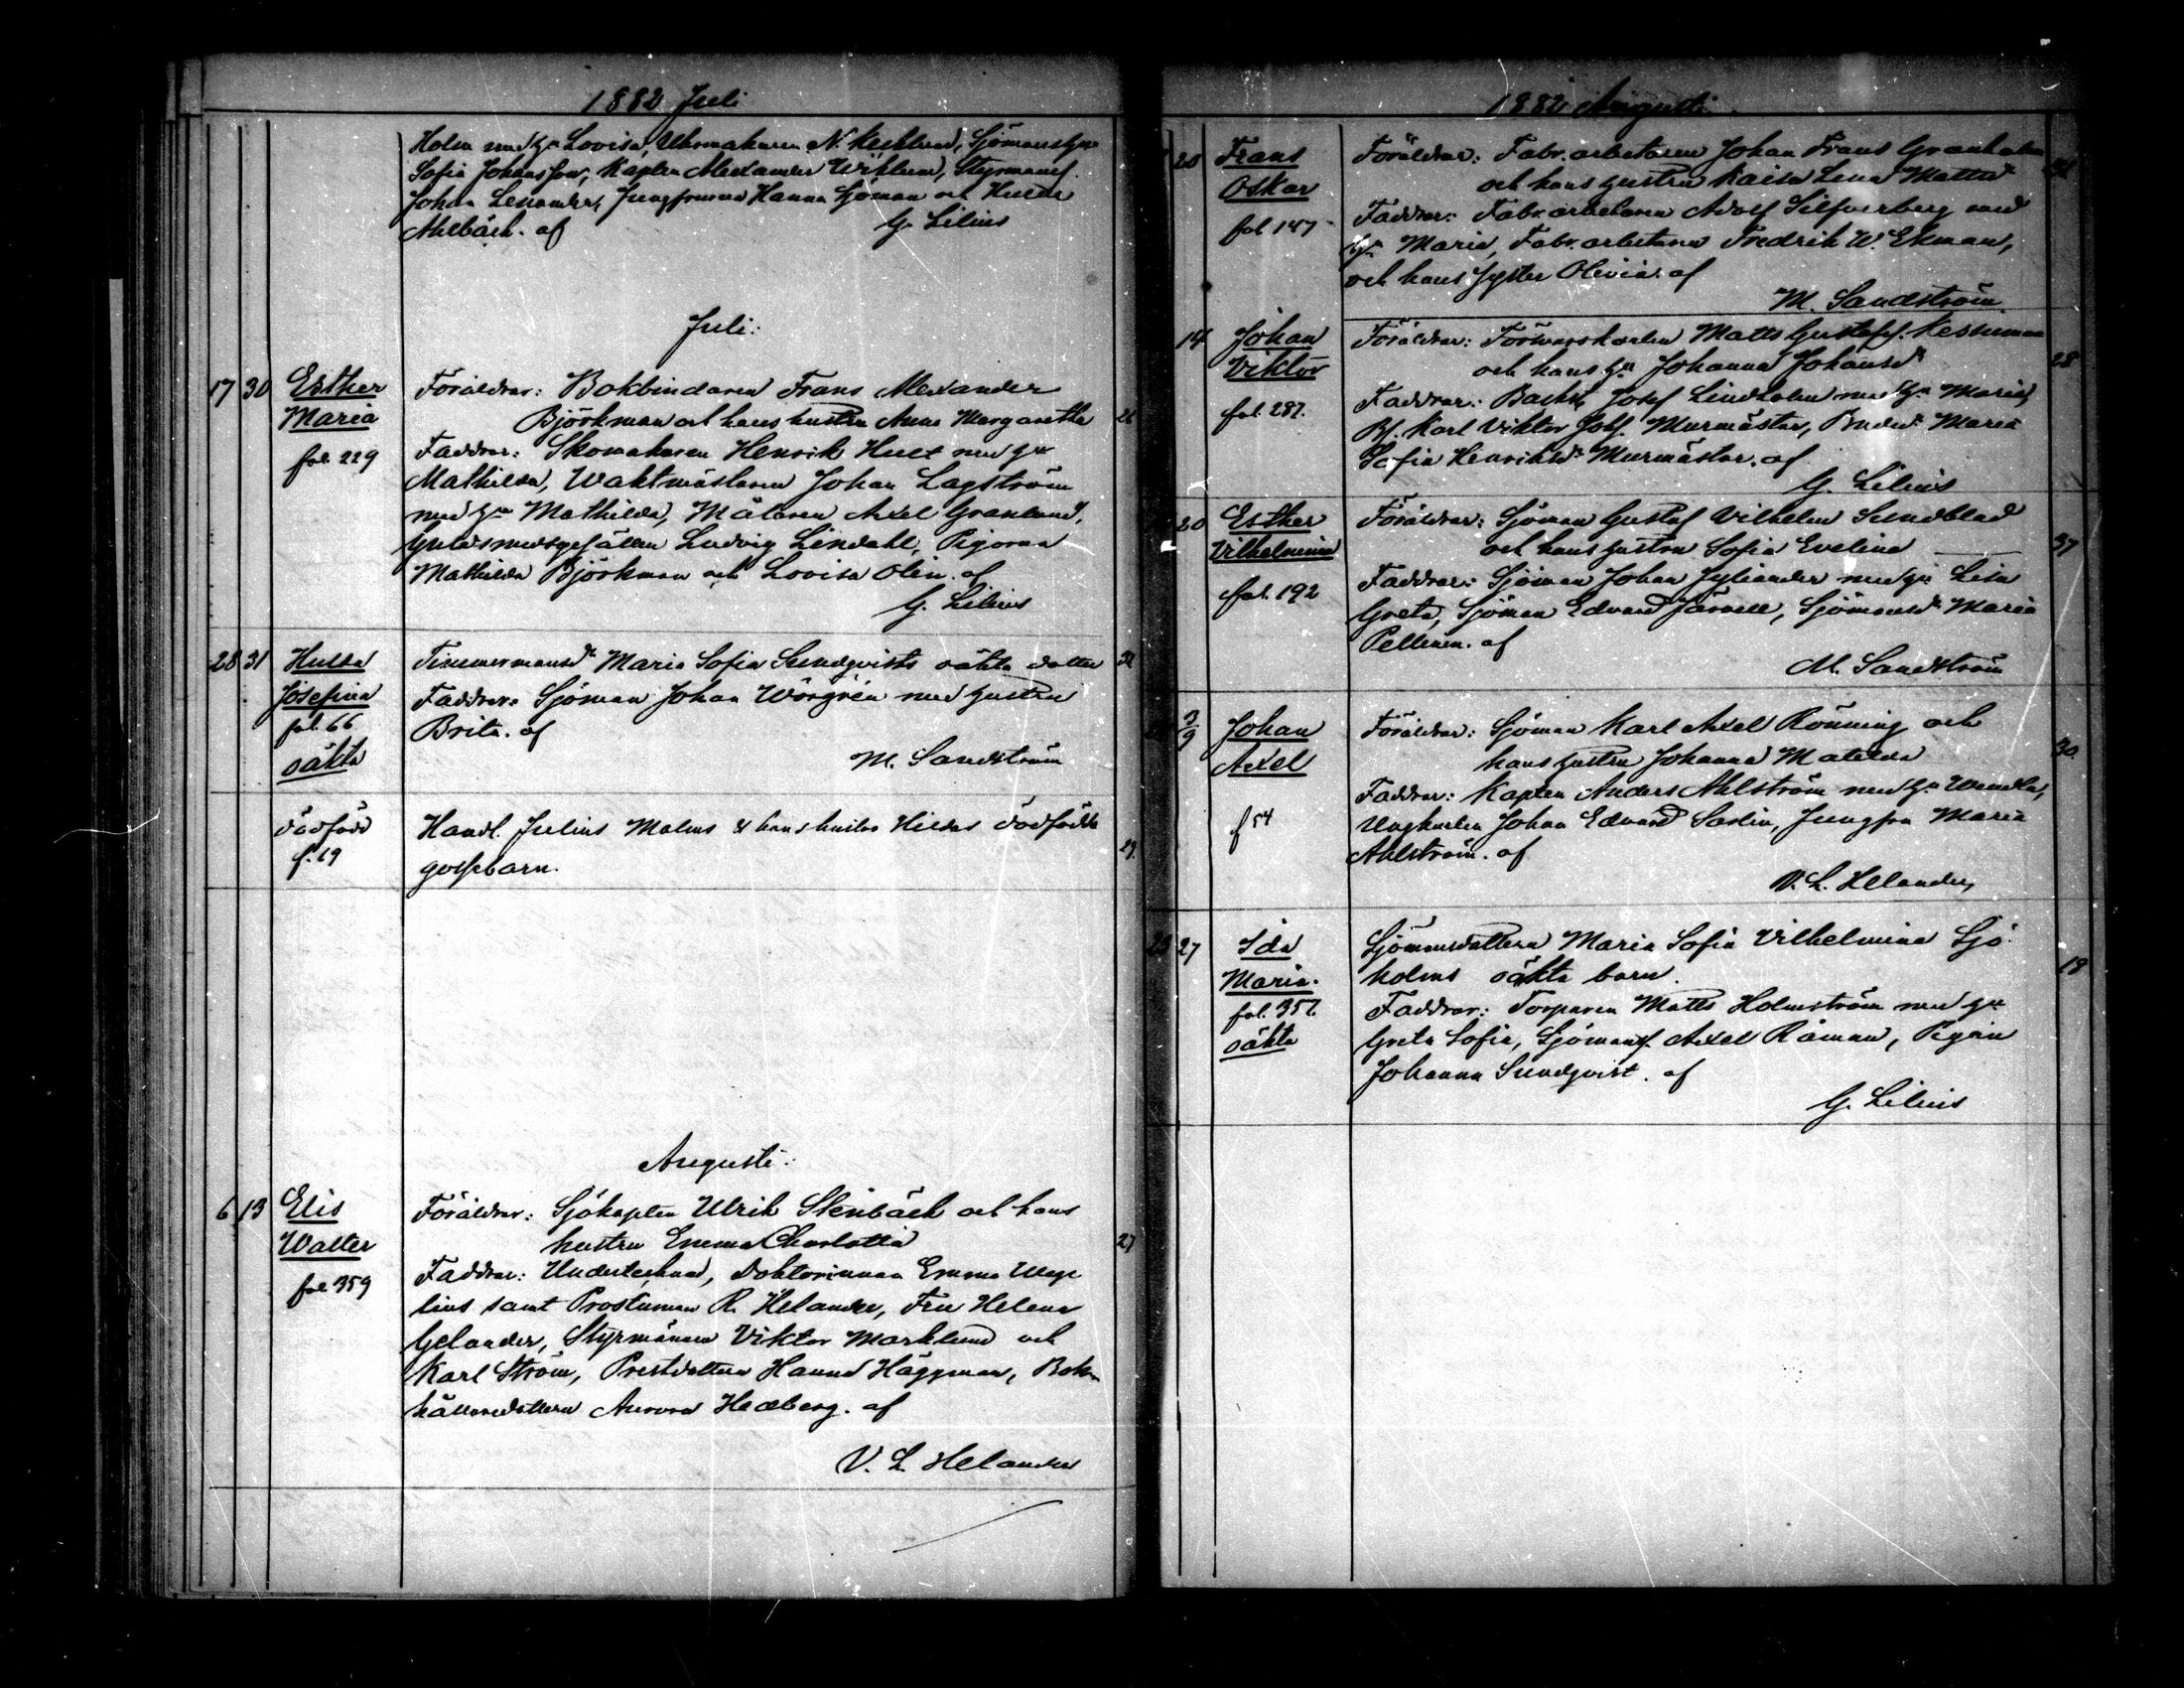 1882 Juli
Holm med h:u Lovisa, Uhrmakaren N. Kecklund, Sjömansh:u
Sofia Johansson, Kapten Alexander Wiklund, Styrmans
Johan Lenander, Jungfruarna Hanna Sjöman och Hulda
Ahlbäck. af G. Lilius
Juli:
17 30 Esther Föräldrar: Bokbindaren Frans Alexander
Maria Björkman och hans hustru Anna Margaretha 26
fol. 229 Faddrar: Skomakaren Henrik Hult med h:u
Mathilda, Waktmästaren Johan Lagström
med h:u Mathilda, Målaren Axel Granlund,
Guldsmedsgesällen Ludvig Lindahl, Pigorna
Mathilda Björkman och Lovisa Olin. af
G. Lilius
28 31 Hulda Timmermansd:r Maria Sofia Sundqvists oäkta dotter
Josefina Faddrar: Sjöman Johan Wörgrén med hustru
fol. 66 Brita. af
oäkta M. Sandström
dödfödd Handl. Julius Malms & hans hustrus Hildas dödfödda
f. 19 gossebarn. 29.
Augusti:
6 13 Elis Föräldrar: Sjökapten Ulrik Stenbäck och hans
Walter hustru Emma Charlotta 27
fol 359 Faddrar: Undertecknad, Doktorinnan Emma Wege
lius samt Prostinnan R. Helander, Fru Helena
Gelander, Styrmännen Viktor Marklund och
Karl Ström, Prestdottern Hanna Häggman, Bok-
hållaredottern Aurora Hedberg. af
V. L. Helander
1882 Augusti.
20 Frans Föräldrar: Fabr.arbetaren Johan Frans Granholm
Oskar och hans hustru Kaisa Lena Mattsd:r
fol 147 Faddrar: Fabr.arbetaren Adolf Silfverberg med
h:u Maria, Fabr.arbetaren Fredrik W. Ekman,
och hans syster Olivia. af
M. Sandström
14 Johan Föräldrar: Förswarskarlen Matts Gustafss.
Viktor och hans h:u Johanna Johansd:r 28
fol. 287. Faddrar: Josef Lindholm med h:u Maria,
Bs. Karl Viktor Johs. Murmästar, Bonded:r Maria
Sofia Henriksd:r Murmästar. af
G. Lilius
20 Esther Föräldrar: Sjöman Gustaf Vilhelm Sundblad
Vilhelmina och hans hustru Sofia Evelina 37
fol. 192 Faddrar: Sjöman Johan Jyliander med h:u Lisa
Greta, Sjöman Edvard Järnell, Sjömansd:r Maria
Pellinen. af
M. Sandström
3/9 Johan Föräldrar: Sjöman Karl Axel Rönning och
Axel hans hustru Johanna Matilda 30.
Faddrar: Kapten Anders Ahlström med h:u Wendla,
f 54 Ungkarlen Johan Edvard Sadin, Jungfru Maria
Ahlström. af
V. L. Helander,
27 Ida Sjömansdottern Maria Sofia Vilhelmina Sjö-
Maria. holms oäkta barn. 19
fol. 357. Faddrar: Torparen Matts Holmström med h:u
oäkta Greta Sofia, Sjömans. Axel Råman, Pigan
Johanna Sundqvist. af
G. Lilius